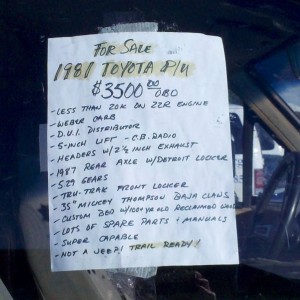 FOR SALE
1981 TOYOTA P/U
$3500.00 OBO
- LESS THAN 20K ON 22R ENGINE
- WEBER CARB
- D.U.I. DISTRIBUTOR
- 5-INCH LIFT - C.B. RADIO
- HEADERS W/2¼ INCH EXHAUST
- 1987 REAR AXLE W/DETROIT LOCKER
- 5.29 GEARS
- TRU-TRAK FRONT LOCKER
- 35" MICKEY THOMPSON BAJA CLAWS
- CUSTOM BED W/100 YR OLD RECLAIMED WOOD
- LOTS OF SPARE PARTS + MANUALS
- SUPER CAPABLE
- NOT A JEEP! TRAIL READY!